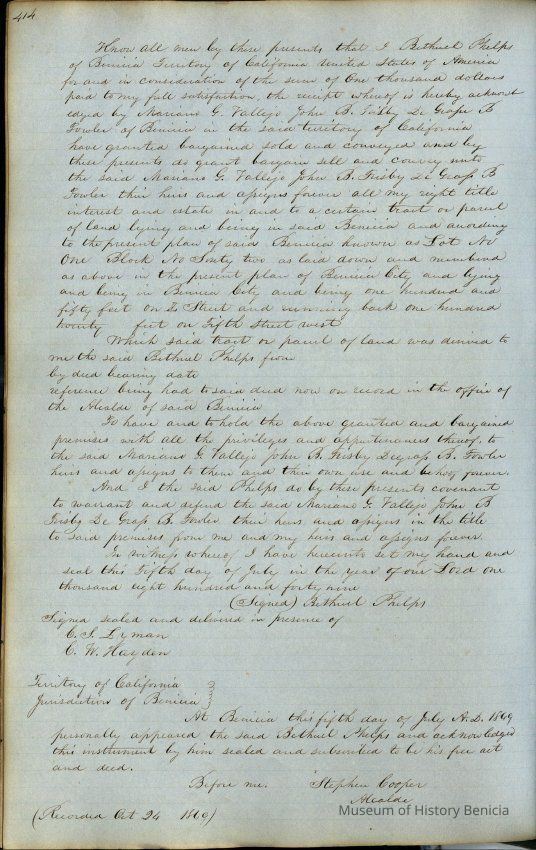 414
Know all men by these presents that I Bethuel Phelps
of Benicia Territory of California United States of America
for and in consideration of the sum of One thousand dollars
paid to my full satisfaction, the receipt whereof is hereby acknowl
edged by Mariano G. Vallejo John B. Frisby De Grass B
Fowler of Benicia in the said territory of California
have granted bargained sold and conveyed and by
these presents do grant bargain sell and convey unto
the said Mariano G. Vallejo John B. Frisby De Grass B
Fowler their heirs and assigns forever all my right title
interest and estate in and to a certain tract or parcel
of land lying and being in said Benicia and according
to the present plan of said Benicia known as Lot No
One Block No Sixty two as laid down and numbered
as above in the present plan of Benicia City and lying
and being in Benicia City and being one hundred and
fifty feet on Street and running back one hundred
twenty feet on Fifth Street west
Which said tract or parcel of land was derived to
me the said Bethuel Phelps from
by deed bearing date
reference being had to said deed now on record in the office of
the Alcalde of said Benicia
To have and to hold the above granted and bargained
premises with all the privileges and appurtenances thereof, to
the said Mariano G. Vallejo John B. Frisby Degrass B. Fowler
heirs and assigns to them and their own use and behoof forever.
And I the said Phelps do by these presents covenant
to warrant and defend the said Mariano G. Vallejo John B
Frisby De Grass B. Fowler their heirs and assigns in the title
to said premises from me and my heirs and assigns forever.
In witness whereof I have hereunto set my hand and
seal this Fifth day of July in the year of our Lord one
thousand eight hundred and forty nine
(Signed) Bethuel Phelps
Signed sealed and delivered in presence of
C. S. Lyman
C. W. Hayden
Territory of California
Jurisdiction of Benicia
At Benicia this fifth day of July A.D. 1849
personally appeared the said Bethuel Phelps and acknowledged
this instrument by him sealed and subscribed to be his free act
and deed.
Before me. Stephen Cooper
Alcalde
(Recorded Oct 24 1849)
Museum of History Benicia